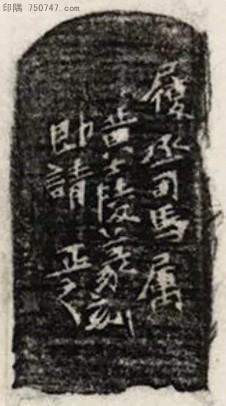 印隅 750747.com
履丞司馬属
黄士陵篆刻
即請 正之